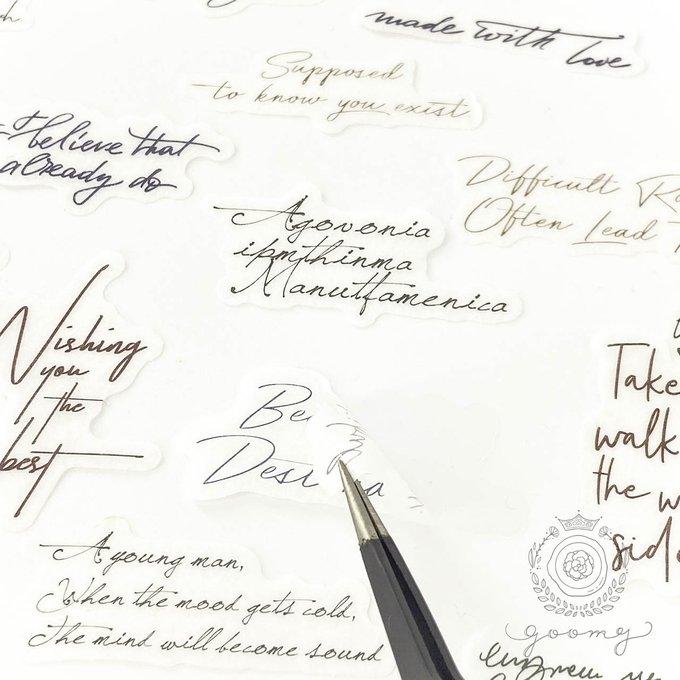 made with love
Supposed
to know you exist
I believe that
already do
Difficult
Often Lead
Agovonia
ipmthinma
Manutfamenica
Wishing
you
the
best
Take
walk
the
side
A young man,
When the mood gets cold,
The mind will become sound
goomy